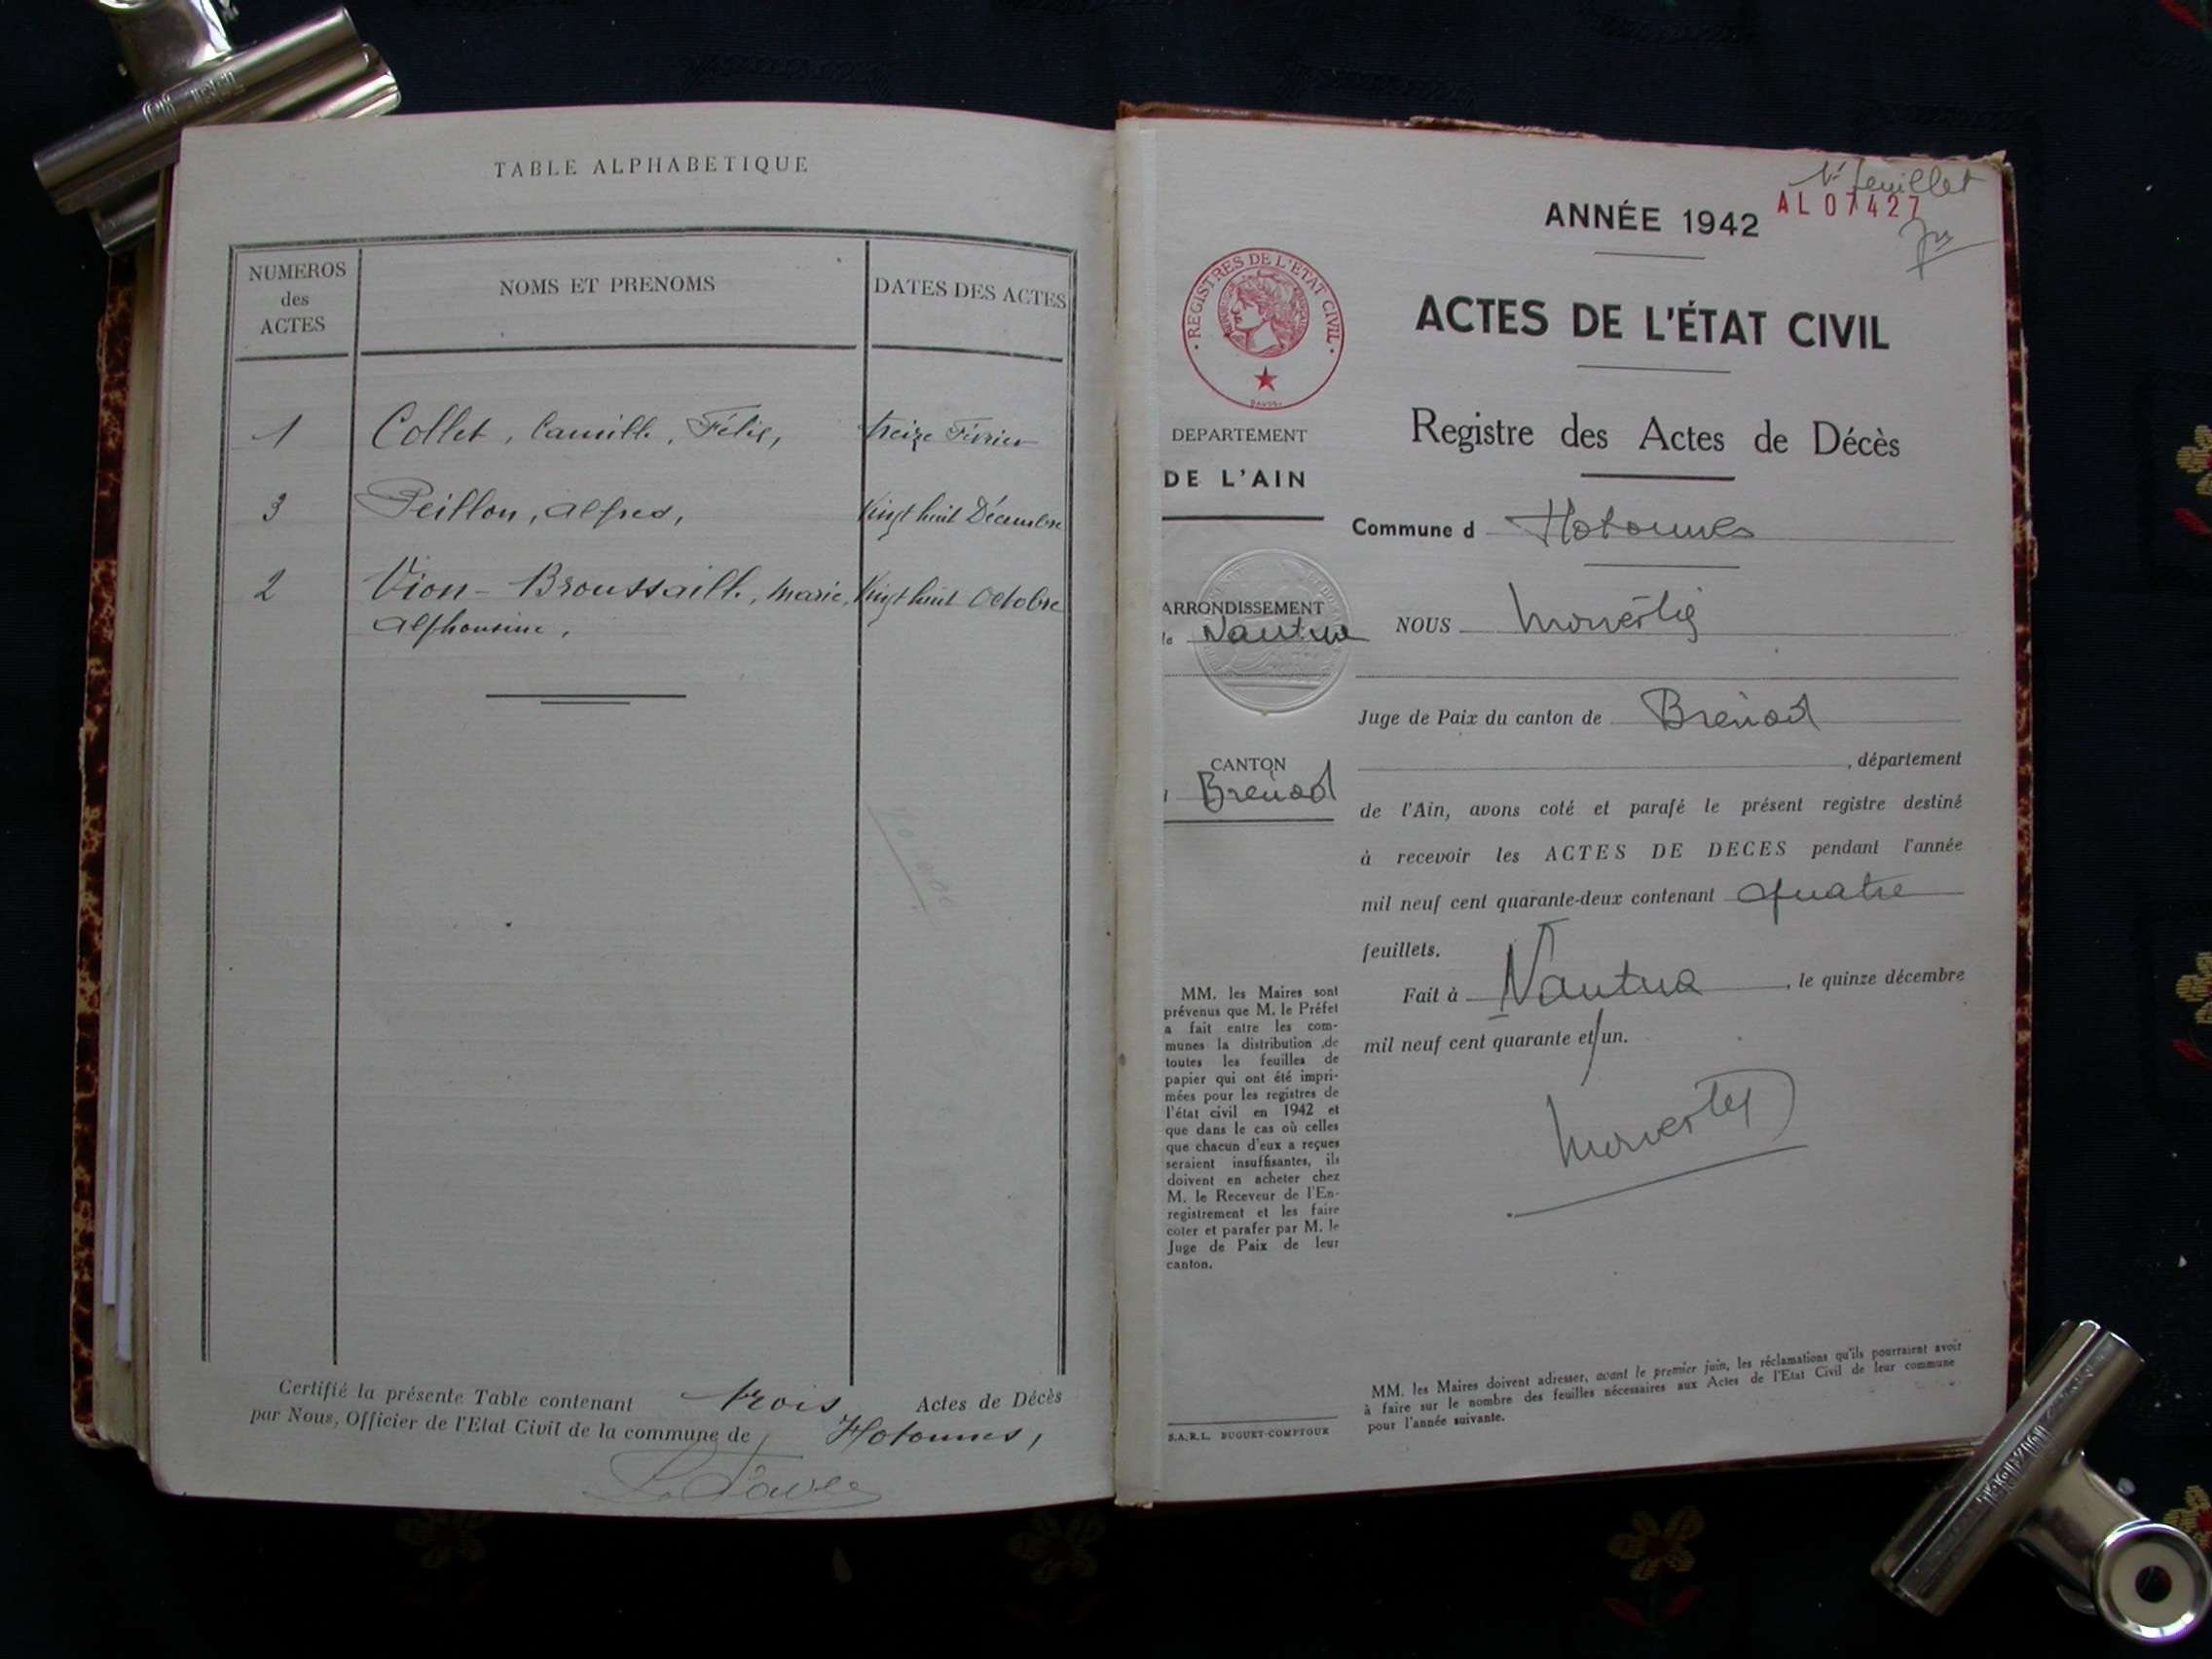 TABLE ALPHABETIQUE
NUMEROS
des
ACTES
NOMS ET PRENOMS
DATES DES ACTES
1 Collet, Camille, Félix, treize Février
3 Peillon, Alfred, Vingt huit Décembre
2 Vion-Broussaille, Marie, Vingt huit Octobre
Alphonsine,
Certifié la présente Table contenant trois Actes de Décès
par Nous, Officier de l'Etat Civil de la commune de Hotonnes,
1er feuillet
AL 07427
ANNÉE 1942
• REGISTRES DE L'ÉTAT CIVIL •
ACTES DE L'ÉTAT CIVIL
Registre des Actes de Décès
DEPARTEMENT
DE L'AIN
Commune d Hotonnes
ARRONDISSEMENT
de Nantua
NOUS
Juge de Paix du canton de Brénod
CANTON
Brénod
, département
de l'Ain, avons coté et parafé le présent registre destiné
à recevoir les ACTES DE DECES pendant l'année
mil neuf cent quarante-deux contenant quatre
feuillets.
Fait à Nantua, le quinze décembre
mil neuf cent quarante et un.
MM. les Maires sont
prévenus que M. le Préfet
a fait entre les com-
munes la distribution de
toutes les feuilles de
papier qui ont été impri-
mées pour les registres de
l'état civil en 1942 et
que dans le cas où celles
que chacun d'eux a reçues
seraient insuffisantes, ils
doivent en acheter chez
M. le Receveur de l'En-
registrement et les faire
coter et parafer par M. le
Juge de Paix de leur
canton.
S.A.R.L. BUGUET-COMPTOUR
MM. les Maires doivent adresser, avant le premier juin, les réclamations qu'ils pourraient avoir
à faire sur le nombre des feuilles nécessaires aux Actes de l'Etat Civil de leur commune
pour l'année suivante.